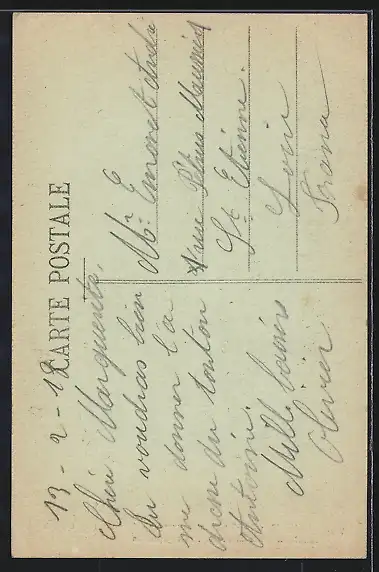 CARTE POSTALE
13 - 2 - 19
Chère Marguerite,
tu voudras bien
me donner la
dresse du tonton
Antoine.
Mille baisers
Olivier
Mr Emoret André
rue Pétrus Maussier
St Etienne.
Loire
France